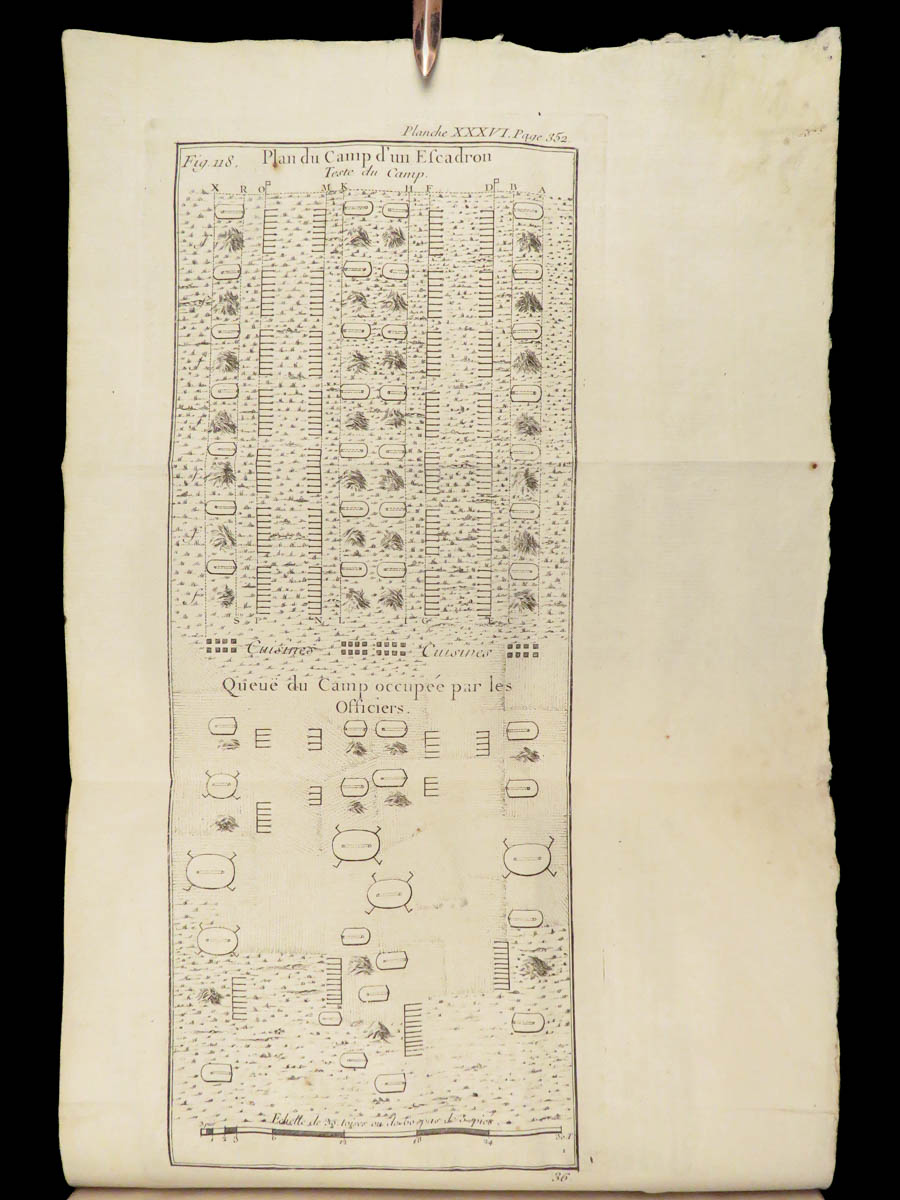 Planche XXXVI. Page 352
Fig. 118. Plan du Camp d'un Escadron
Teste du Camp.
X R O M K H F D B A
S P N L I G E C
Cuisines Cuisines
Queuë du Camp occupée par les
Officiers.
Echelle de 30 toises ou de 60 pas de 3 pies
6 12 18 24 30 T
36